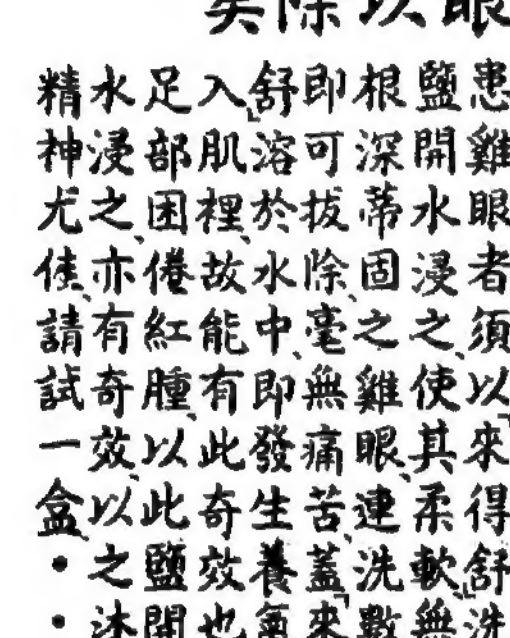 眼以除矣
患雞眼者須以「來得舒」洗
鹽開水浸之、使其柔軟無
根深蒂固之雞眼、連洗數
即可拔除、毫無痛苦、蓋「來
舒」溶於水中、即發生養氣
入肌裡、故能有此奇效也
足部困倦紅腫、以此鹽開
水浸之、亦有奇效、以之沐
精神尤佳、請試一盒、・・